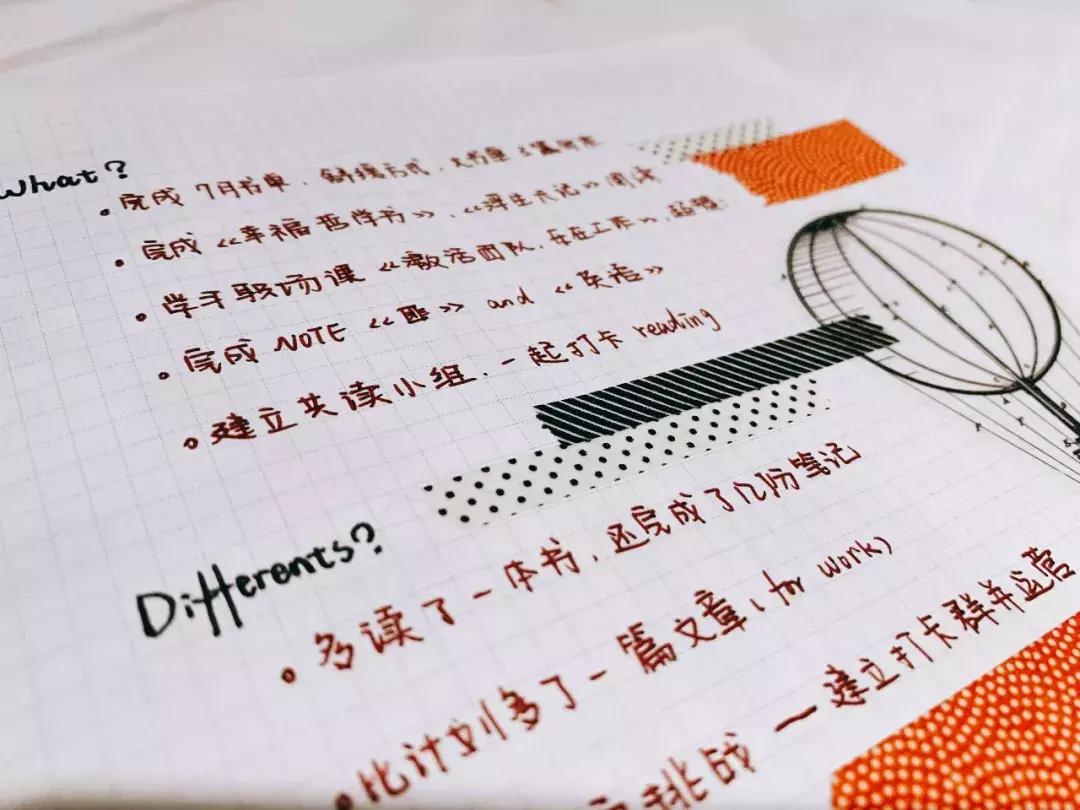 What?
。完成 7月书单,
。完成《幸福哲学书》,《浮生六记》阅读
。学于职场课《激活团队,存在工作》,
。完成 NOTE 《匪》 and 《英语》
。建立共读小组,一起打卡 reading
Differents?
。多读了一本书,还完成了几份笔记
。比计划多了一篇文章(for work)
挑战 — 建立打卡群并运营